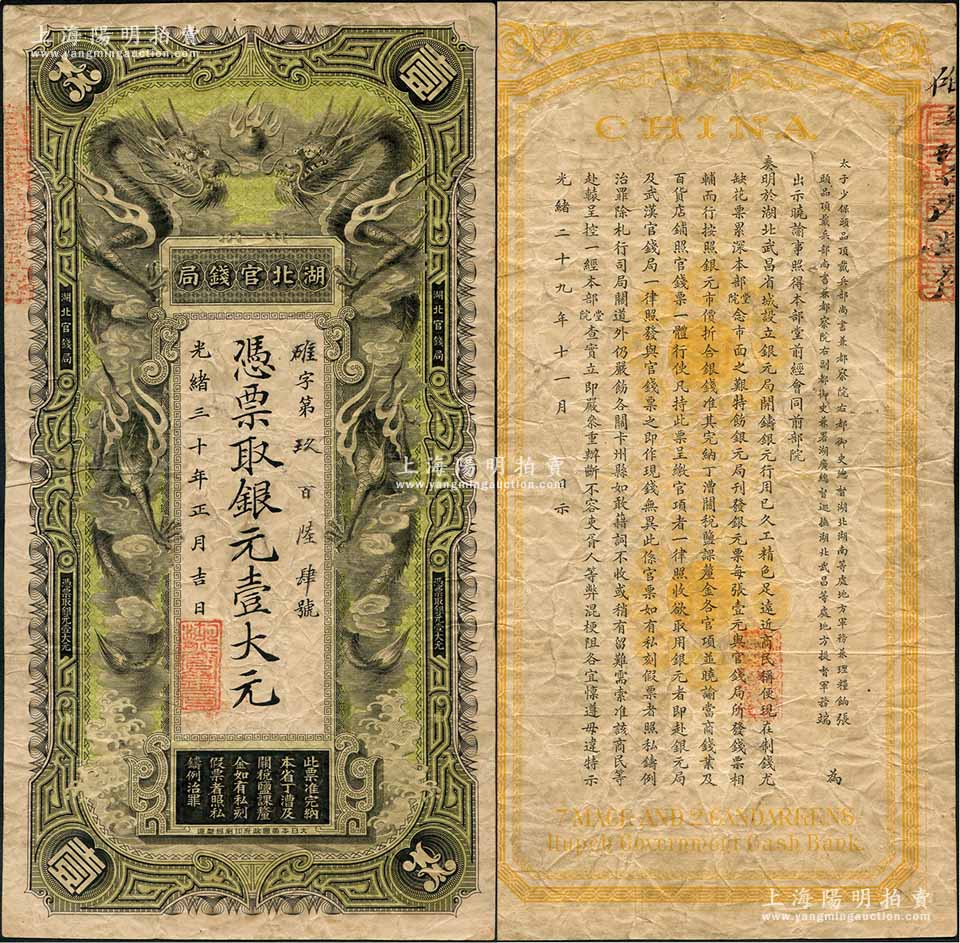 上海陽明拍賣
www.yangmingauction.com
壹
湖北官錢局
湖北官錢局
湖北官錢局
雄字第玖百陸肆號
憑票取銀元壹大元
光緒三十年正月吉日
憑票取銀元壹大元
憑票取銀元壹大元
此票准完納
本省丁漕及
關稅鹽課釐
金如有私刻
假票者照私
鑄例治罪
大日本帝國政府印刷局製造
壹
上海陽明拍賣
www.yangmingauction.com
CHINA
太子少保頭品頂戴兵部尚書兼都察院右都御史總督湖北湖南等處地方軍務兼理糧餉張
頭品頂戴兵部尚書兼都察院右副都御史兼署湖廣總督巡撫湖北武昌等處地方提督軍務端 為
出示曉諭事照得本部堂前經會同前部院
奏明於湖北武昌省城設立銀元局開鑄銀元行用已久工精色足遠近商民稱便現在制錢尤
缺花票累深本部堂院念市面之艱特飭銀元局刊發銀元票每張壹元與官錢局所發錢票相
輔而行按照銀元市價折合銀錢准其完納丁漕關稅鹽課釐金各官項並曉諭當商錢業及
百貨店鋪照官錢票一體行使凡持此票呈繳官項者一律照收欲取用銀元者即赴銀元局
及武漢官錢局一律照發與官錢票之即作現錢無異此係官票如有私刻假票者照私鑄例
治罪除札行司局關道外仍嚴飭各關卡州縣如敢藉詞不收或稍有留難需索准該商民等
赴轅呈控一經本部堂院查實立即嚴參重辦斷不容吏胥人等弊混梗阻各宜懍遵毋違特示
光緒二十九年十一月 日示
7 MACE AND 2 CANDAREENS
Hupeh Government Cash Bank.
上海陽明拍賣
www.yangmingauction.com